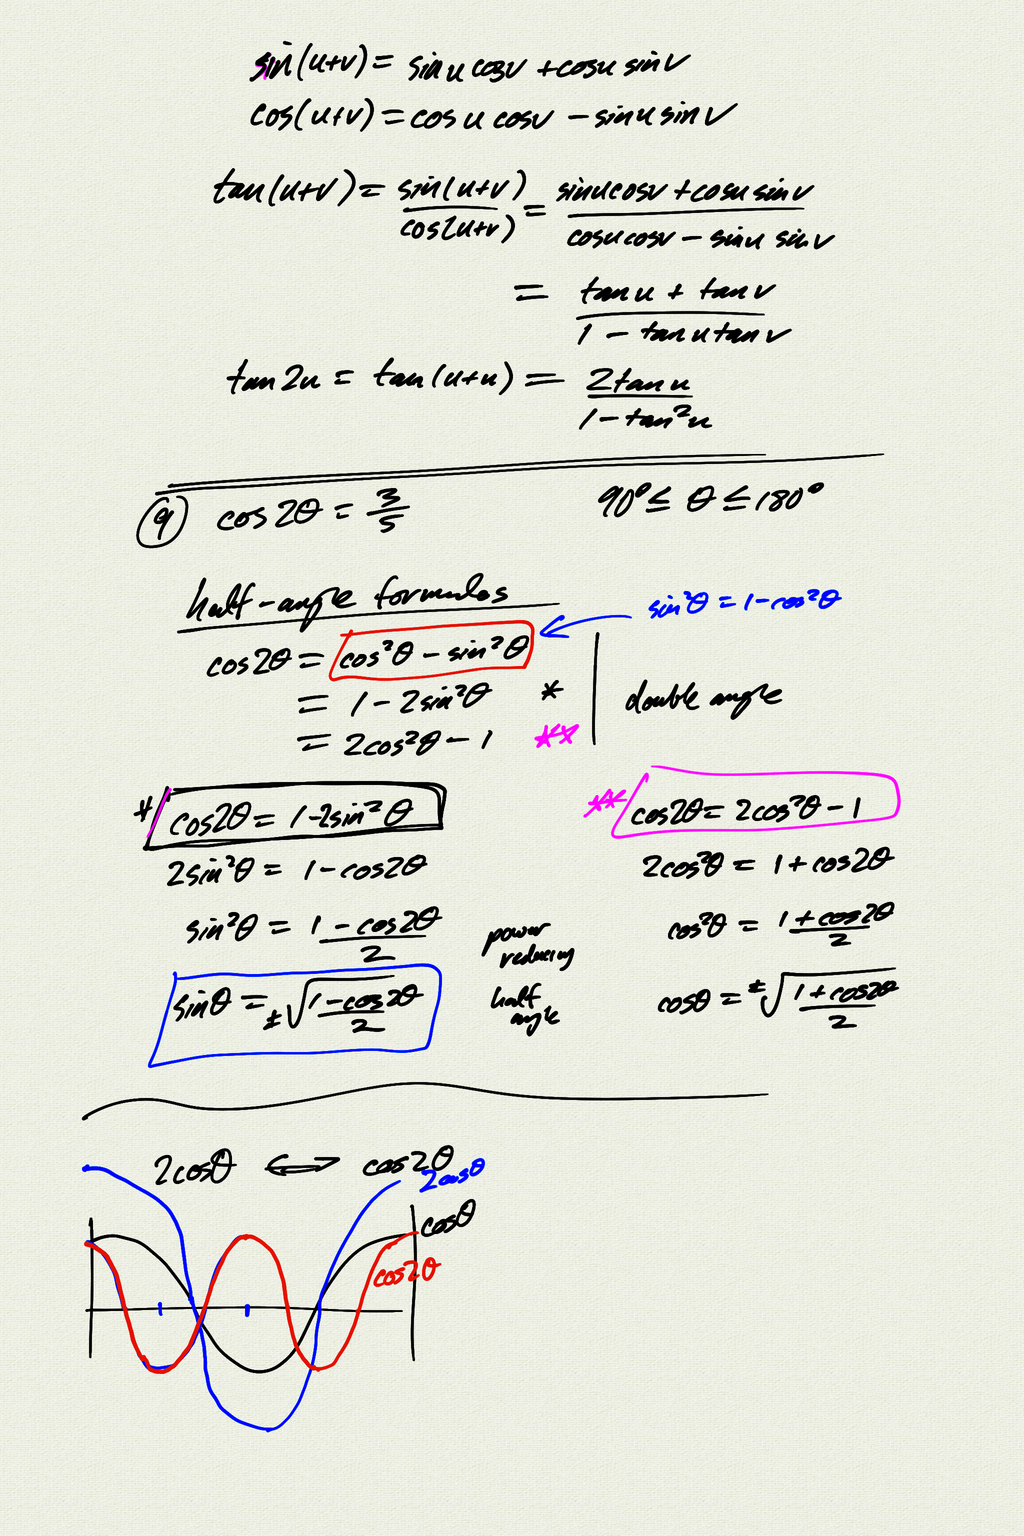 sin(u+v) = sin u cos v + cos u sin v
cos(u+v) = cos u cos v − sin u sin v
tan(u+v) = sin(u+v)/cos(u+v) = (sin u cos v + cos u sin v)/(cos u cos v − sin u sin v)
= (tan u + tan v)/(1 − tan u tan v)
tan 2u = tan(u+u) = 2tan u/(1 − tan²u)
⑨ cos 2θ = 3/5 90° ≤ θ ≤ 180°
half-angle formulas
sin²θ = 1 − cos²θ
cos 2θ = cos²θ − sin²θ
= 1 − 2sin²θ *
= 2cos²θ − 1 **
double angle
* cos2θ = 1 − 2sin²θ
2sin²θ = 1 − cos2θ
sin²θ = (1 − cos2θ)/2
sinθ = ±√((1 − cos2θ)/2)
power reducing
half angle
** cos2θ = 2cos²θ − 1
2cos²θ = 1 + cos2θ
cos²θ = (1 + cos2θ)/2
cosθ = ±√((1 + cos2θ)/2)
2cosθ ⟺ cos2θ
2cosθ
cosθ
cos2θ